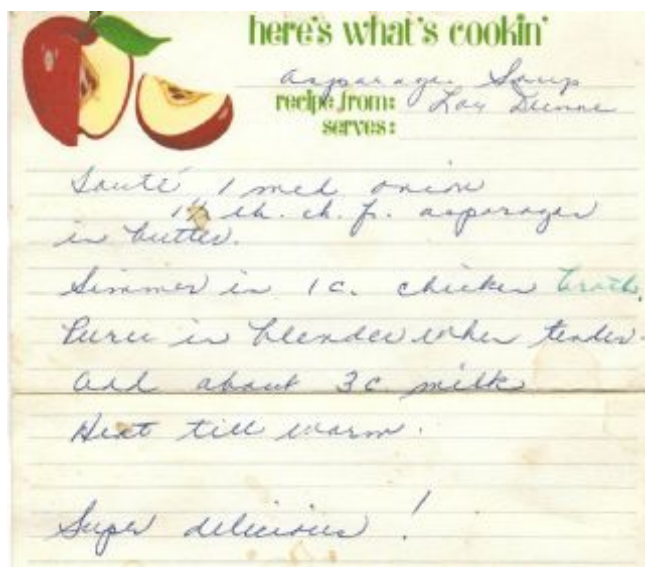 here's what's cookin'
Asparagus Soup
recipe from: Lou
serves:
Sauté 1 med onion
1½ lb. ch. f. asparagus
in butter.
Simmer in 1 c. chicken broth.
Puree in blender when tender.
Add about 3 c. milk
Heat till warm.
Super delicious!